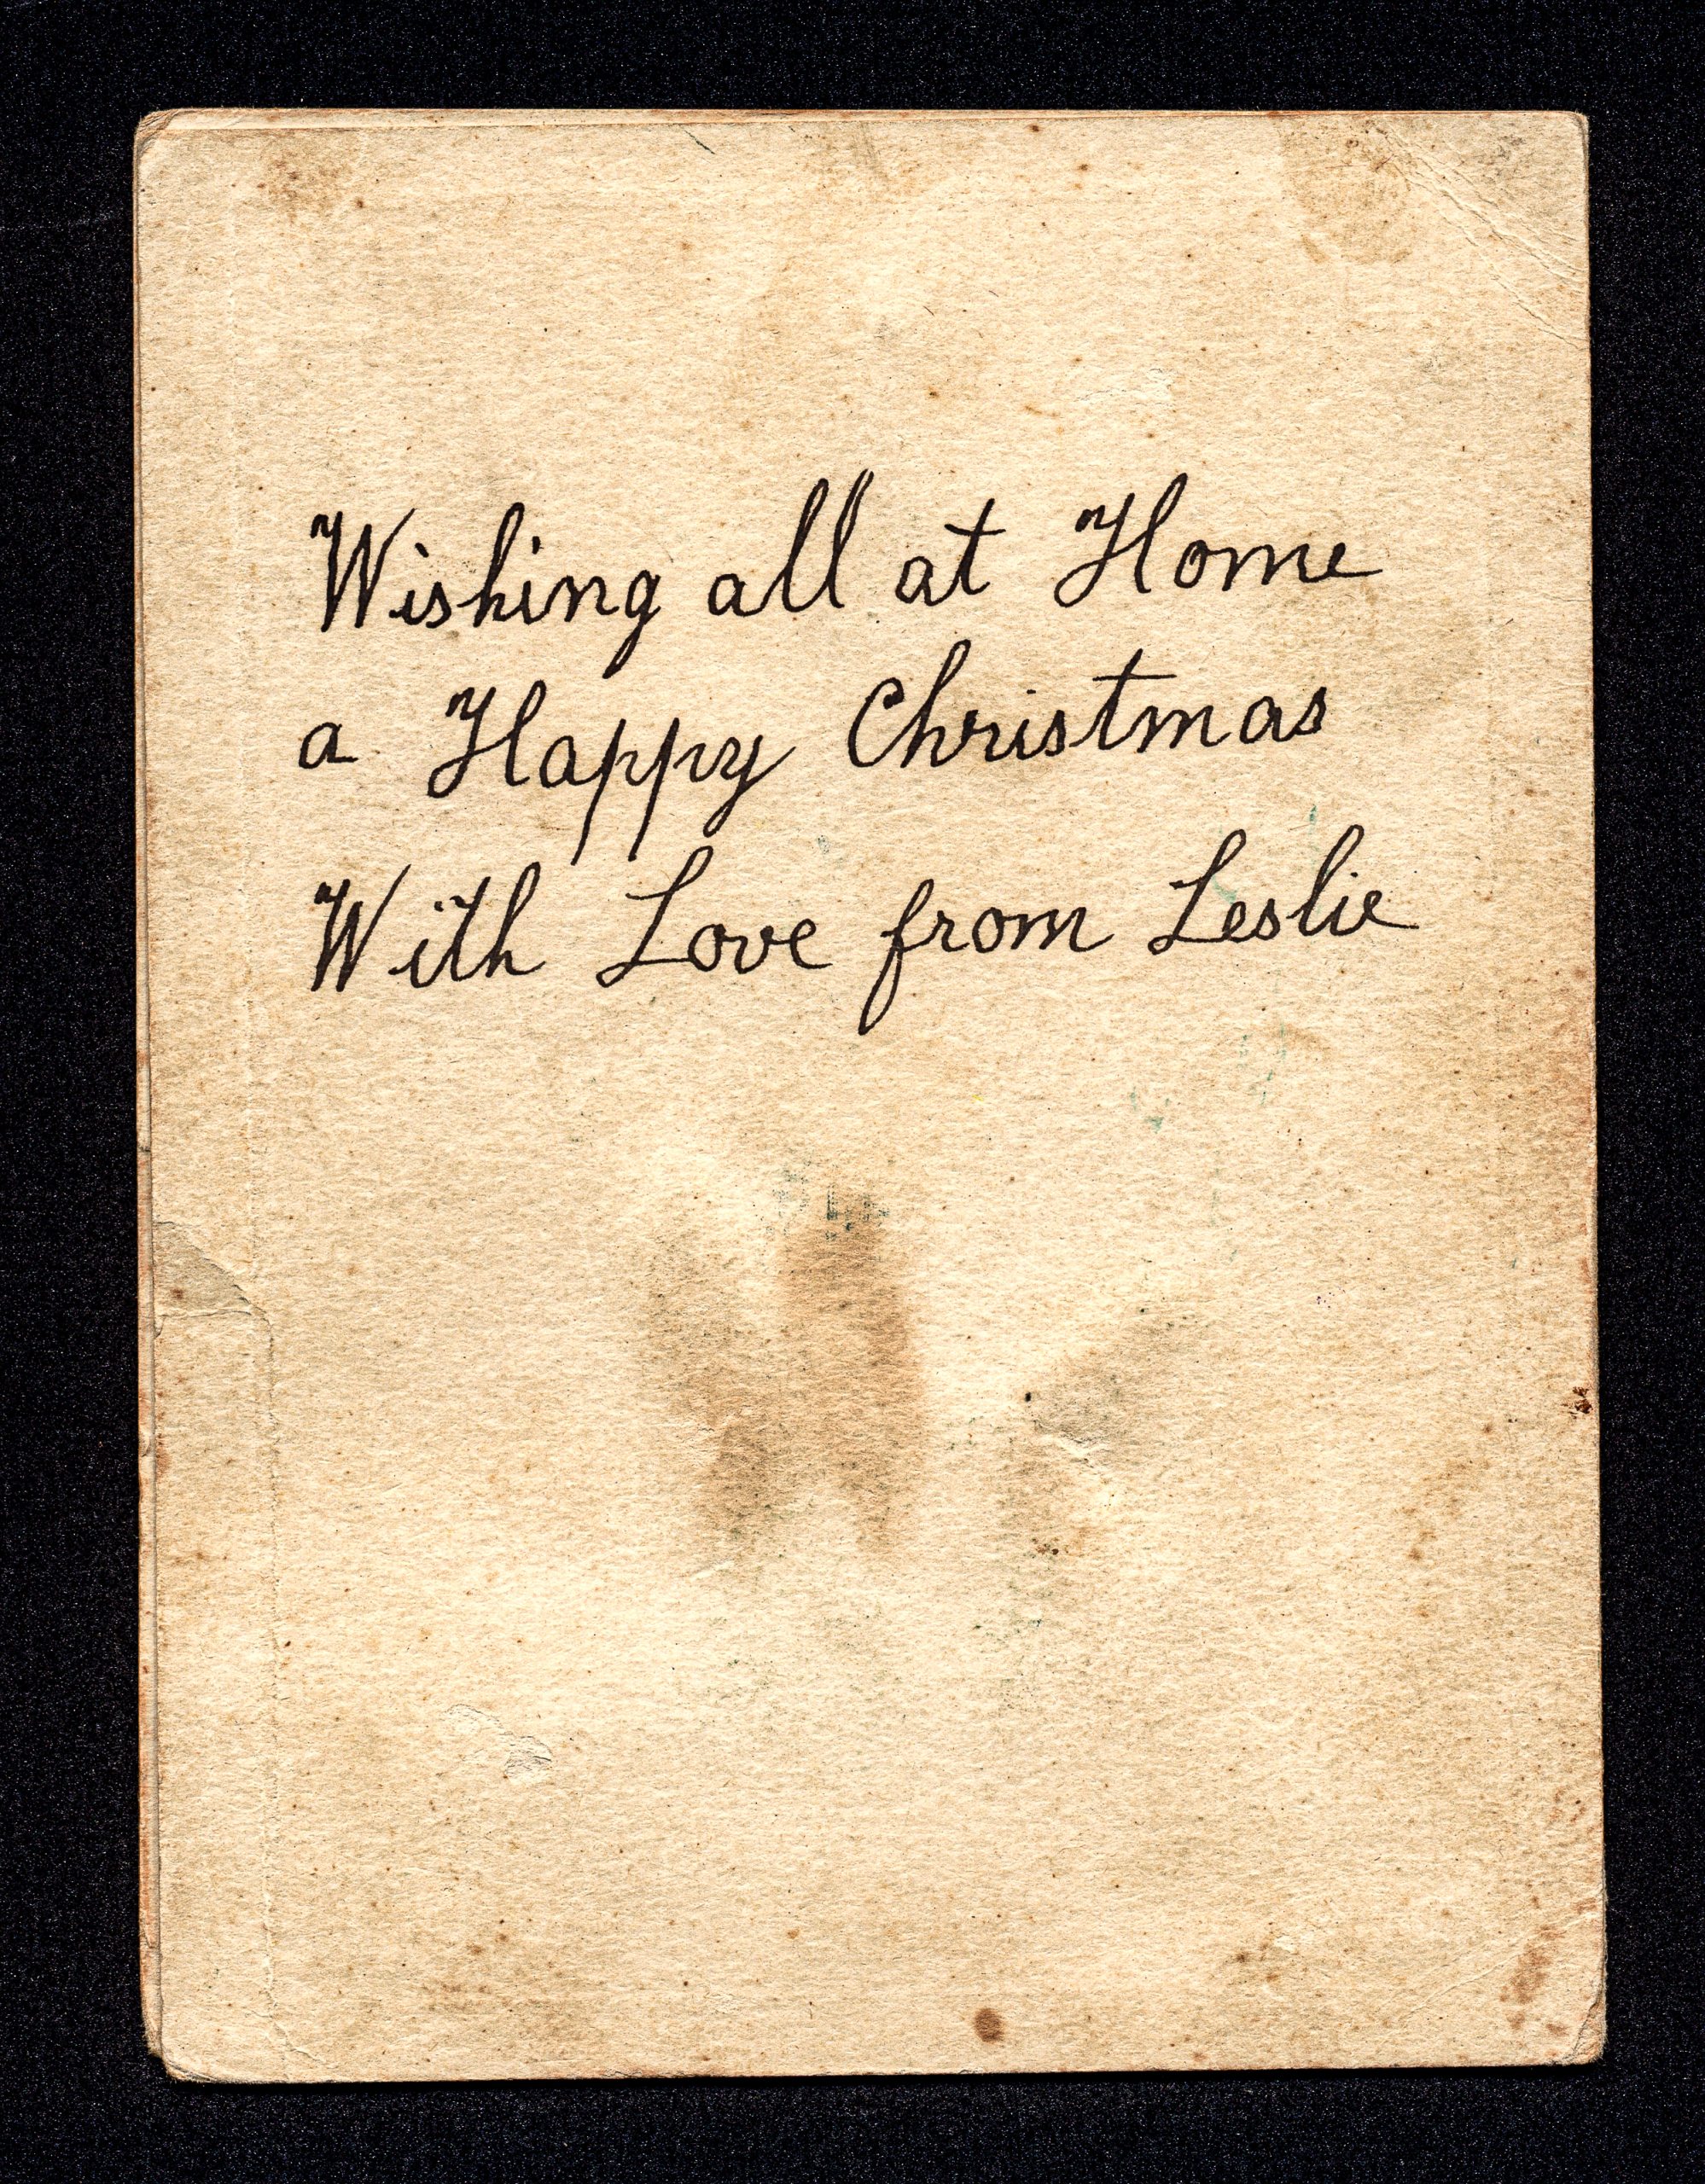 Wishing all at Home
a Happy Christmas
With Love from Leslie